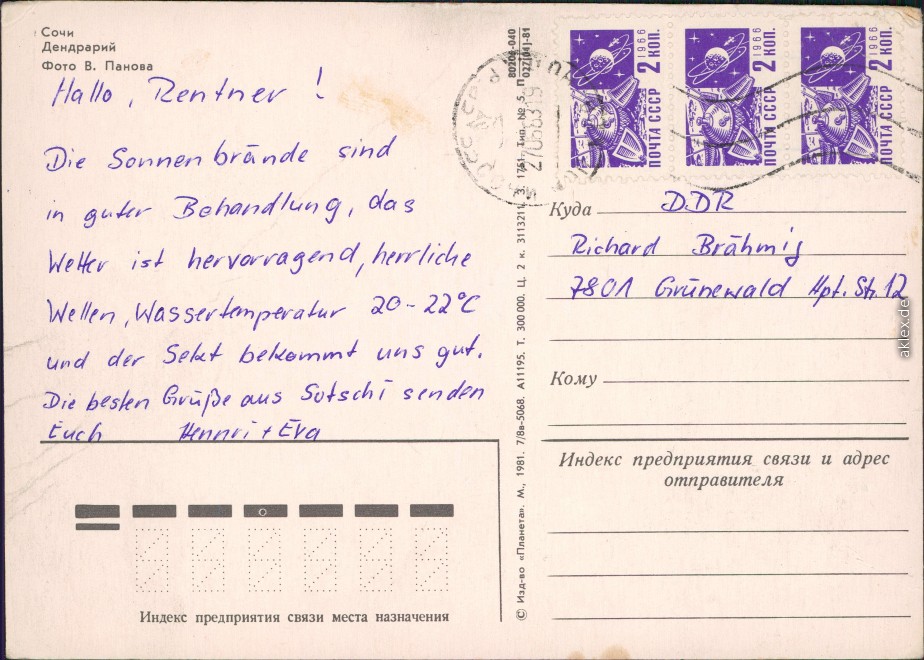 Сочи
Дендрарий
Фото В. Панова
Hallo, Rentner!
Die Sonnenbrände sind
in guter Behandlung, das
Wetter ist hervorragend, herrliche
Wellen, Wassertemperatur 20-22°C
und der Sekt bekommt uns gut.
Die besten Grüße aus Sotschi senden
Euch Hennri + Eva
Индекс предприятия связи места назначения
© Изд-во «Планета». М., 1981. 7/8в-5068. А11195. Т. 300 000. Ц. 2 к. 311321. З. 1751. Тип. № 5. П
80204-040
027[04]-81
2 КОП. 1966
ПОЧТА СССР
2 КОП. 1966
ПОЧТА СССР
2 КОП. 1966
ПОЧТА СССР
Куда DDR
Richard Brähmig
7801 Grünewald Hpt. Str. 12
Кому
Индекс предприятия связи и адрес
отправителя
aklex.de